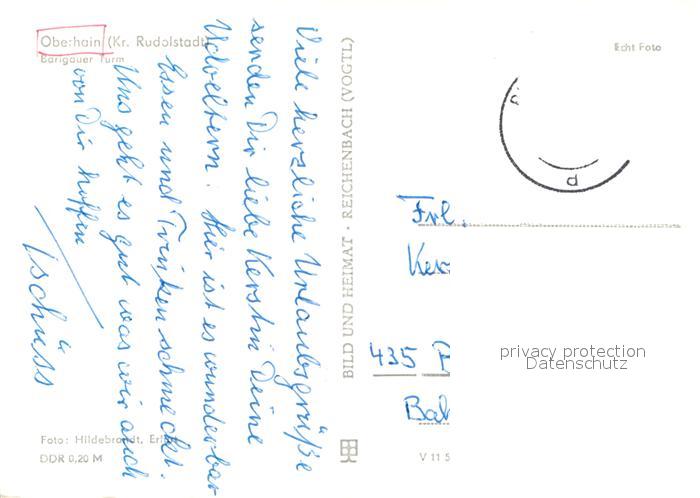 Oberhain (Kr. Rudolstadt)
Barigauer Turm
Echt Foto
Viele herzliche Urlaubsgrüße
senden Dir liebe Kerstin Deine
Hier ist es wunderbar
Essen und Trinken schmeckt.
Uns geht es gut was wir auch
von Dir hoffen
Tschüss
BILD UND HEIMAT · REICHENBACH (VOGTL)
Frl.
Ker
435
privacy protection
Datenschutz
Foto: Hildebrandt,
DDR 0,20 M
V 11 5